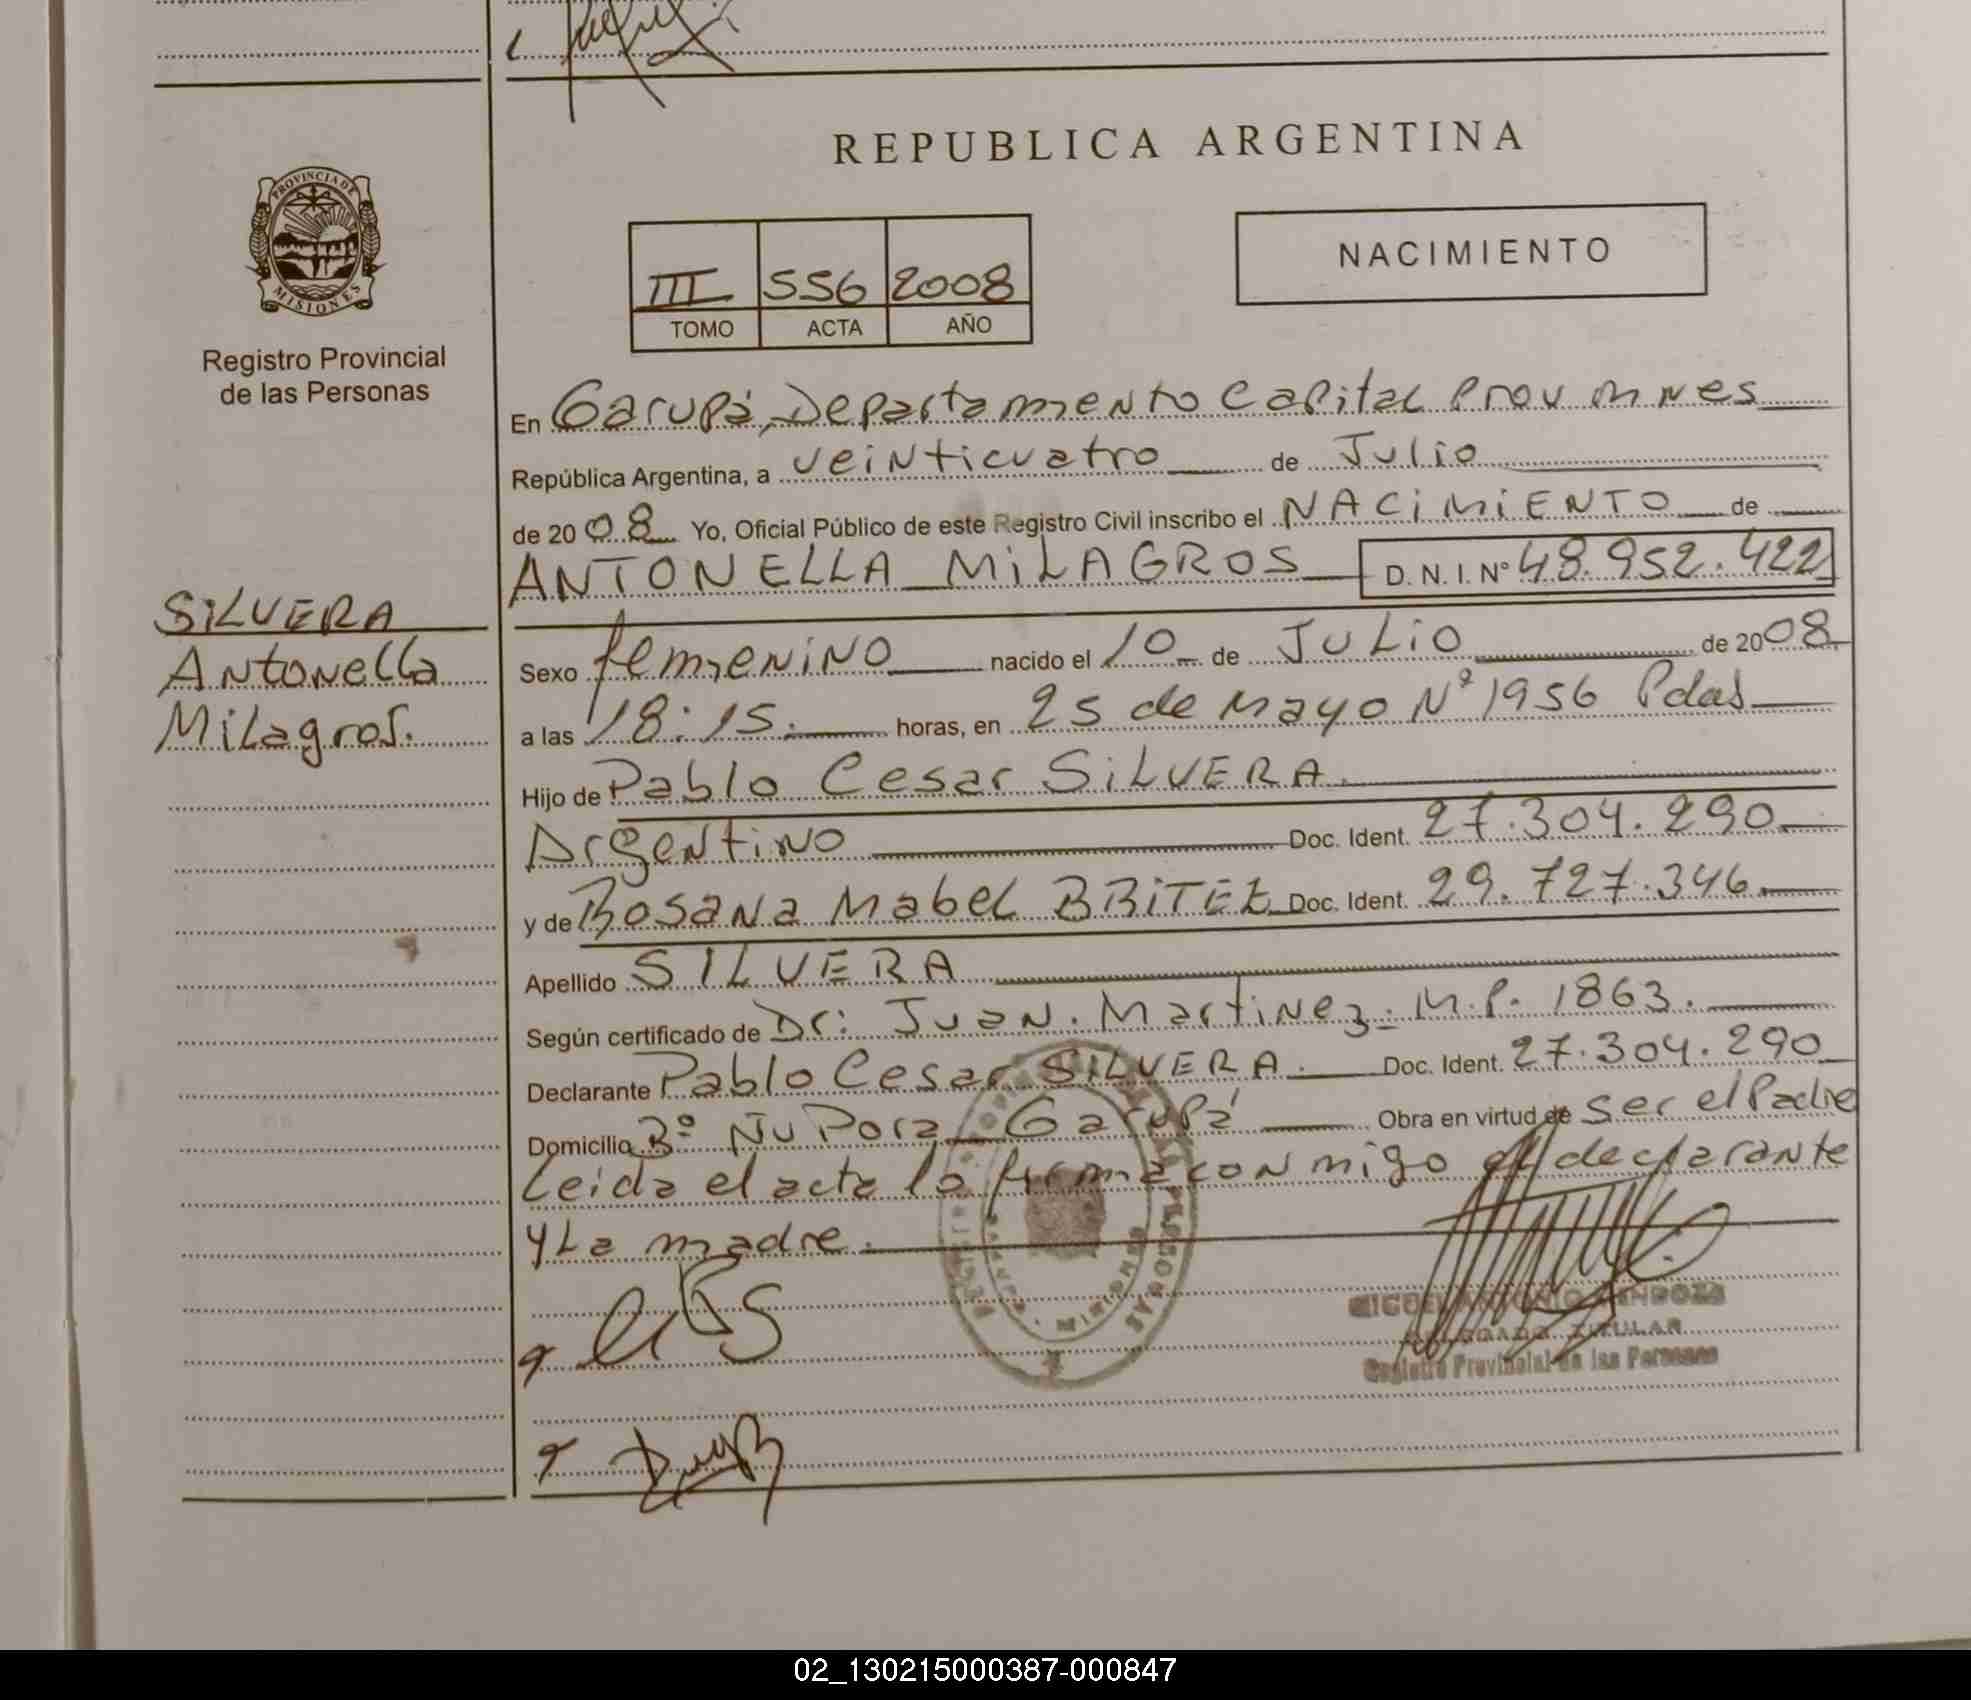 REPUBLICA ARGENTINA
PROVINCIA DE
MISIONES
Registro Provincial
de las Personas
III 556 2008
TOMO ACTA AÑO
NACIMIENTO
En Garupá, Departamento Capital Prov Mnes
República Argentina, a veinticuatro de Julio
de 2008 Yo, Oficial Público de este Registro Civil inscribo el NACIMIENTO de
ANTONELLA MILAGROS D. N. I. Nº 48.952.422
SILVERA
Antonella
Milagros.
Sexo femenino nacido el 10 de JULIO de 2008
a las 18:15. horas, en 25 de Mayo Nº 1956 Pdas
Hijo de Pablo Cesar SILVERA.
Argentino Doc. Ident. 27.304.290
y de Rosana Mabel BRITEZ Doc. Ident. 29.727.346
Apellido SILVERA
Según certificado de Dr: Juan. Martinez: M.P. 1863.
Declarante Pablo Cesar SILVERA. Doc. Ident. 27.304.290
Domicilio Bº Ñu Pora Garupá Obra en virtud de ser el Padre
Leida el acta la firma conmigo el declarante
y La madre.
MIGUEL ANTONIO MENDOZA
DELEGADO TITULAR
Registro Provincial de las Personas
02_130215000387-000847